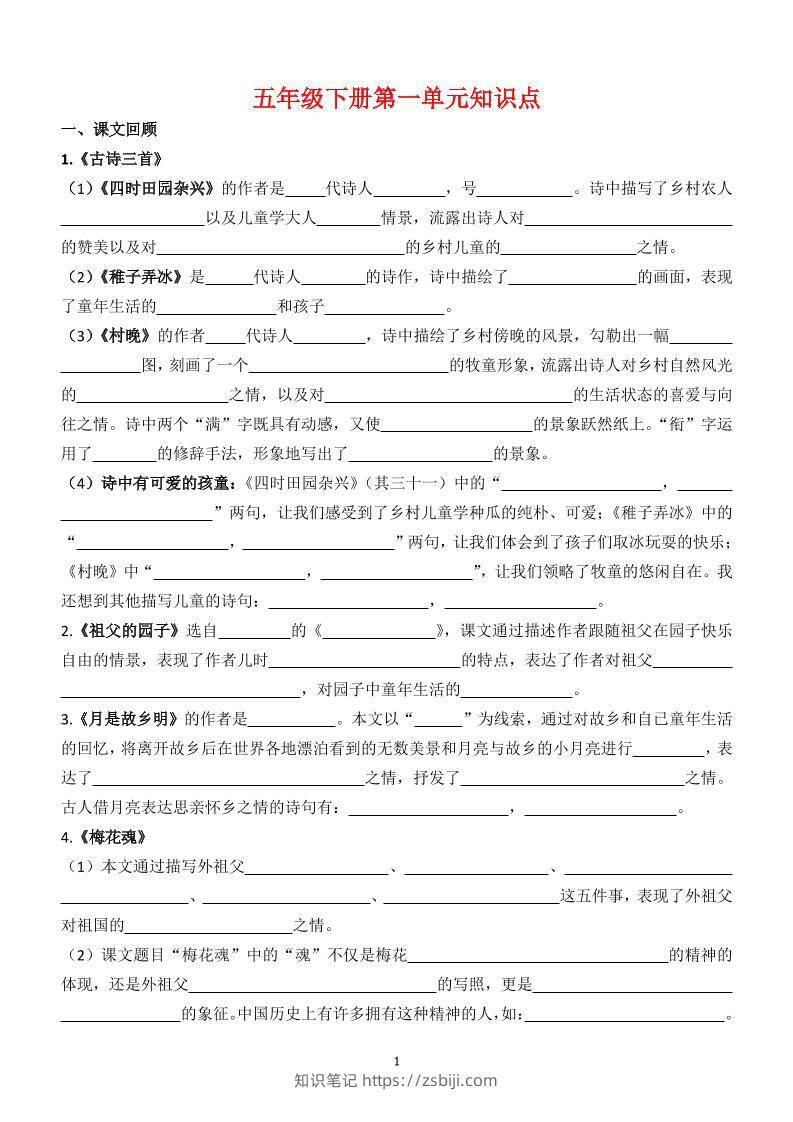 五年级下册第一单元知识点
一、课文回顾
1.《古诗三首》
（1）《四时田园杂兴》的作者是_____代诗人_________，号____________。诗中描写了乡村农人
__________________以及儿童学大人________情景，流露出诗人对__________________________
的赞美以及对_______________________________的乡村儿童的_________________之情。
（2）《稚子弄冰》是______代诗人________的诗作，诗中描绘了________________的画面，表现
了童年生活的_______________和孩子_______________。
（3）《村晚》的作者_____代诗人_________，诗中描绘了乡村傍晚的风景，勾勒出一幅________
__________图，刻画了一个_________________________的牧童形象，流露出诗人对乡村自然风光
的___________________之情，以及对_______________________________的生活状态的喜爱与向
往之情。诗中两个“满”字既具有动感，又使___________________的景象跃然纸上。“衔”字运
用了________的修辞手法，形象地写出了__________________的景象。
（4）诗中有可爱的孩童：《四时田园杂兴》（其三十一）中的“____________________，_______
___________________”两句，让我们感受到了乡村儿童学种瓜的纯朴、可爱；《稚子弄冰》中的
“___________________，___________________”两句，让我们体会到了孩子们取冰玩耍的快乐；
《村晚》中“___________________，___________________”，让我们领略了牧童的悠闲自在。我
还想到其他描写儿童的诗句：____________________，___________________。
2.《祖父的园子》选自_________的《______________》，课文通过描述作者跟随祖父在园子快乐
自由的情景，表现了作者儿时________________________的特点，表达了作者对祖父__________
______________________________，对园子中童年生活的______________。
3.《月是故乡明》的作者是___________。本文以“______”为线索，通过对故乡和自己童年生活
的回忆，将离开故乡后在世界各地漂泊看到的无数美景和月亮与故乡的小月亮进行_________，表
达了__________________________________之情，抒发了____________________________之情。
古人借月亮表达思亲怀乡之情的诗句有：____________________，___________________。
4.《梅花魂》
（1）本文通过描写外祖父__________________、__________________、_____________________
________________、_____________________、______________________这五件事，表现了外祖父
对祖国的_____________________之情。
（2）课文题目“梅花魂”中的“魂”不仅是梅花_________________________________的精神的
体现，还是外祖父_______________________________的写照，更是_________________________
_______________的象征。中国历史上有许多拥有这种精神的人，如：_________________________。
1
知识笔记 https://zsbiji.com